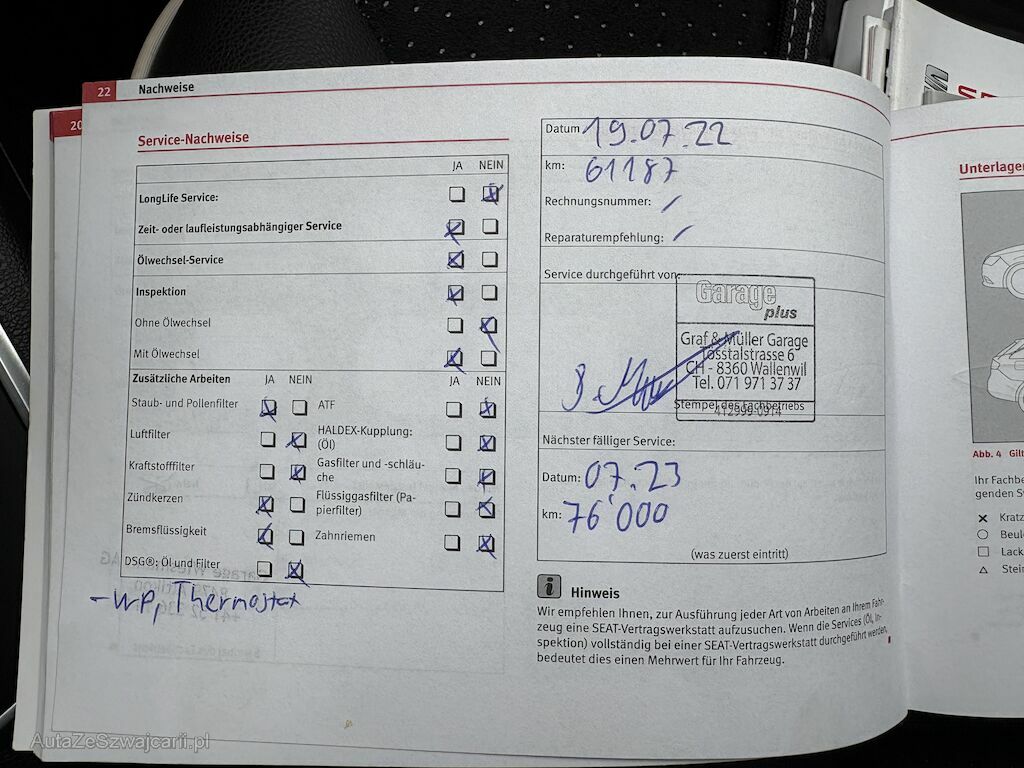 22 Nachweise
20
Service-Nachweise
JA NEIN
LongLife Service:
Zeit- oder laufleistungsabhängiger Service
Ölwechsel-Service
Inspektion
Ohne Ölwechsel
Mit Ölwechsel
Zusätzliche Arbeiten JA NEIN JA NEIN
Staub- und Pollenfilter ATF
Luftfilter HALDEX-Kupplung:
(Öl)
Kraftstofffilter Gasfilter und -schläu-
che
Zündkerzen Flüssiggasfilter (Pa-
pierfilter)
Bremsflüssigkeit Zahnriemen
DSG®: Öl und Filter
- WP, Thermostat
Datum 19.07.22
km: 61187
Rechnungsnummer: /
Reparaturempfehlung: /
Service durchgeführt von:
Garage
plus
Graf & Müller Garage
Tösstalstrasse 6
CH - 8360 Wallenwil
Tel. 071 971 37 37
Stempel des Fachbetriebs
412999 0914
Nächster fälliger Service:
Datum: 07.23
km: 76'000
(was zuerst eintritt)
i Hinweis
Wir empfehlen Ihnen, zur Ausführung jeder Art von Arbeiten an Ihrem Fahr-
zeug eine SEAT-Vertragswerkstatt aufzusuchen. Wenn die Services (Öl, In-
spektion) vollständig bei einer SEAT-Vertragswerkstatt durchgeführt werden,
bedeutet dies einen Mehrwert für Ihr Fahrzeug.
Unterlagen
Abb. 4 Gilt
Ihr Fachbe
genden S
Kratz
Beul
Lack
Stein
AutaZeSzwajcarii.pl